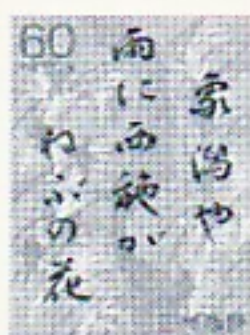 60
象潟や
雨に西施が
ねぶの花